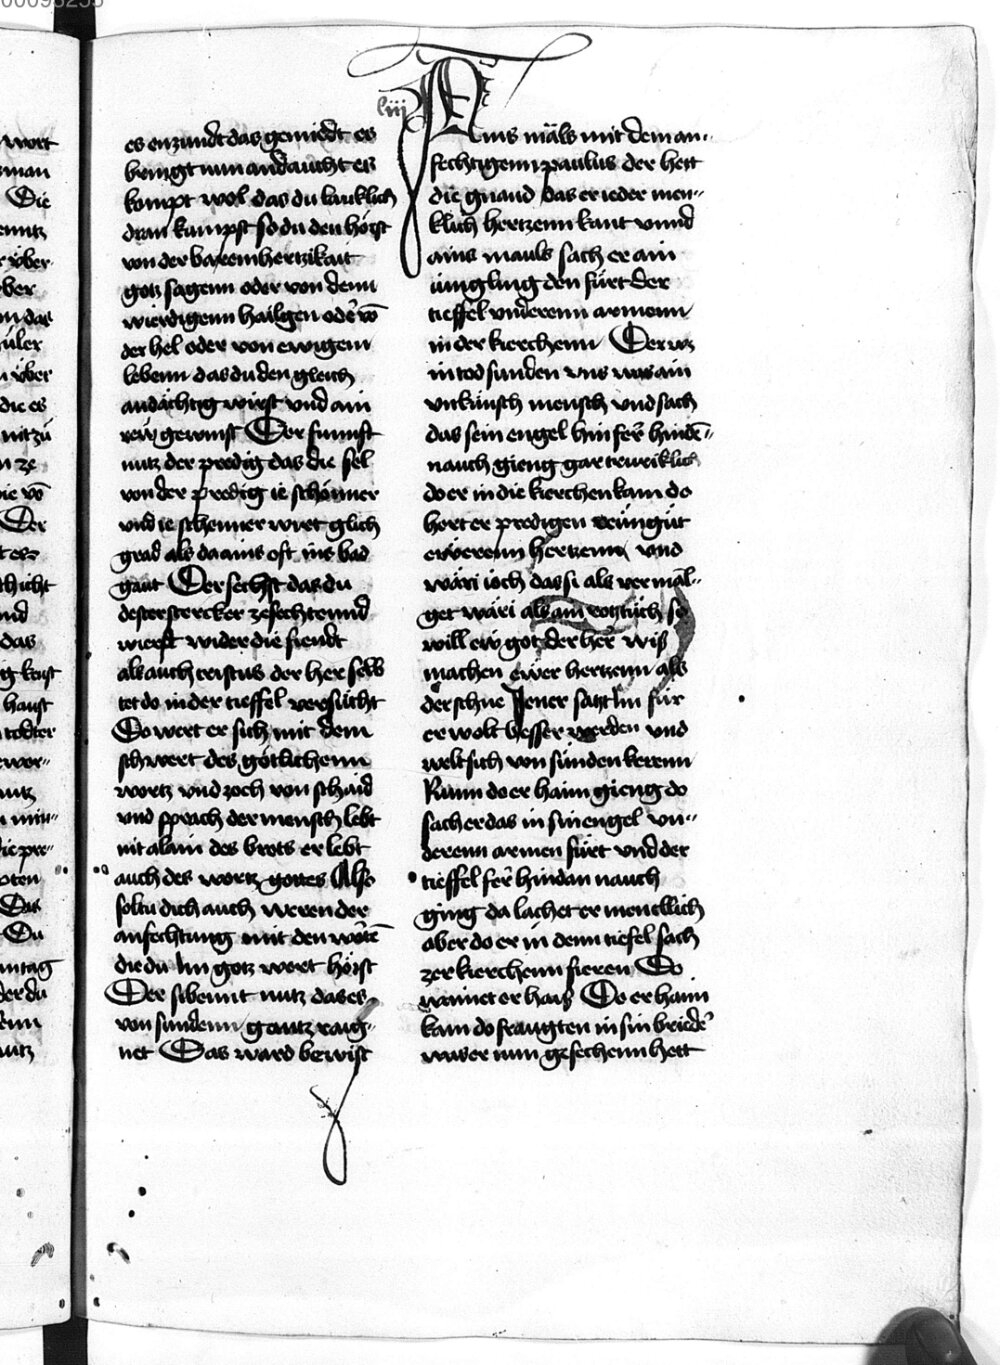 00095255
wort
man
Die
enntz
r über
ber
m das
üler
n über
die es
nit zů
n ze
ie vō
Der
t er
chicht
nd
das
haust
todter
ewer„
nutz
ie pre„
oten
Das
Du
anntag
der da
enn
nutz
es enzündt das gemiedt es
bringt nun andaucht es
kompt wol das du laüklich
dran kumpst so du den hörst
von der baremhertzikait
gotz sagenn oder von denn
wierdigenn hailgen oder vō
der hel oder von ewigem
lebenn das du den gleich
andächtig wirst vnd ain
rew gewinst Der fünnft
nutz der predig das die sel
von der predig ie schönner
vnd ie schenner wirt glich
grad als da ains oft ins bad
gaut Der sechst das du
dester stercker ze fechte und
wierst wider die fiendt
als auch cristus der her selb
tet do in der tieffel versücht
Do wert er sich mit dem
schwert des götlichenn
wortz vnd zoch von schaid
vnd sprach der mensch lebt
nit alain des brots er lebt
auch des wortz gottes Also
soltu dich auch weren der
anfechtung mit den wortē
die du im gotz wort hörst
Der sibennt nutz das es
von sündenn gantz raig„
net Das ward bewist
liij
Ains mäls mit dem an„
fechtigenn paulus der hett
die gnaud das er ieder men„
klich hertzenn kant vnnd
ains mauls sach er ain
iüngling den fürt der
tieffel vnderenn armenn
in der kierchenn Der wz
in tod sunden vns was ain
vnkäusch mensch vnd sach
das sein engel hin fer hindē„
nauch gieng gar trwriklich
do er in die kierchen kam do
hort er predigen reüngüt
ewerenn hertzenn vnd
wäri ioch das si als vermäl„
get wäri als ain rott tüch so
will ew got der her wiß
machen ewer hertzenn als
der schne Jener satzt im für
er wolt besser werden vnd
welt sich von sünden kerenn
Nunn do er haim gieng do
sach er das in sin engel vn„
derenn armen fürt vnd der
tieffel fer hindan nauch
ging da lachet er mencklich
aber do er in denn tiefel sach
zer kierchenn fieren Do
wainet er haiß Do er haim
kam do fraugten in sin briedē
was er nun gesechenn hett